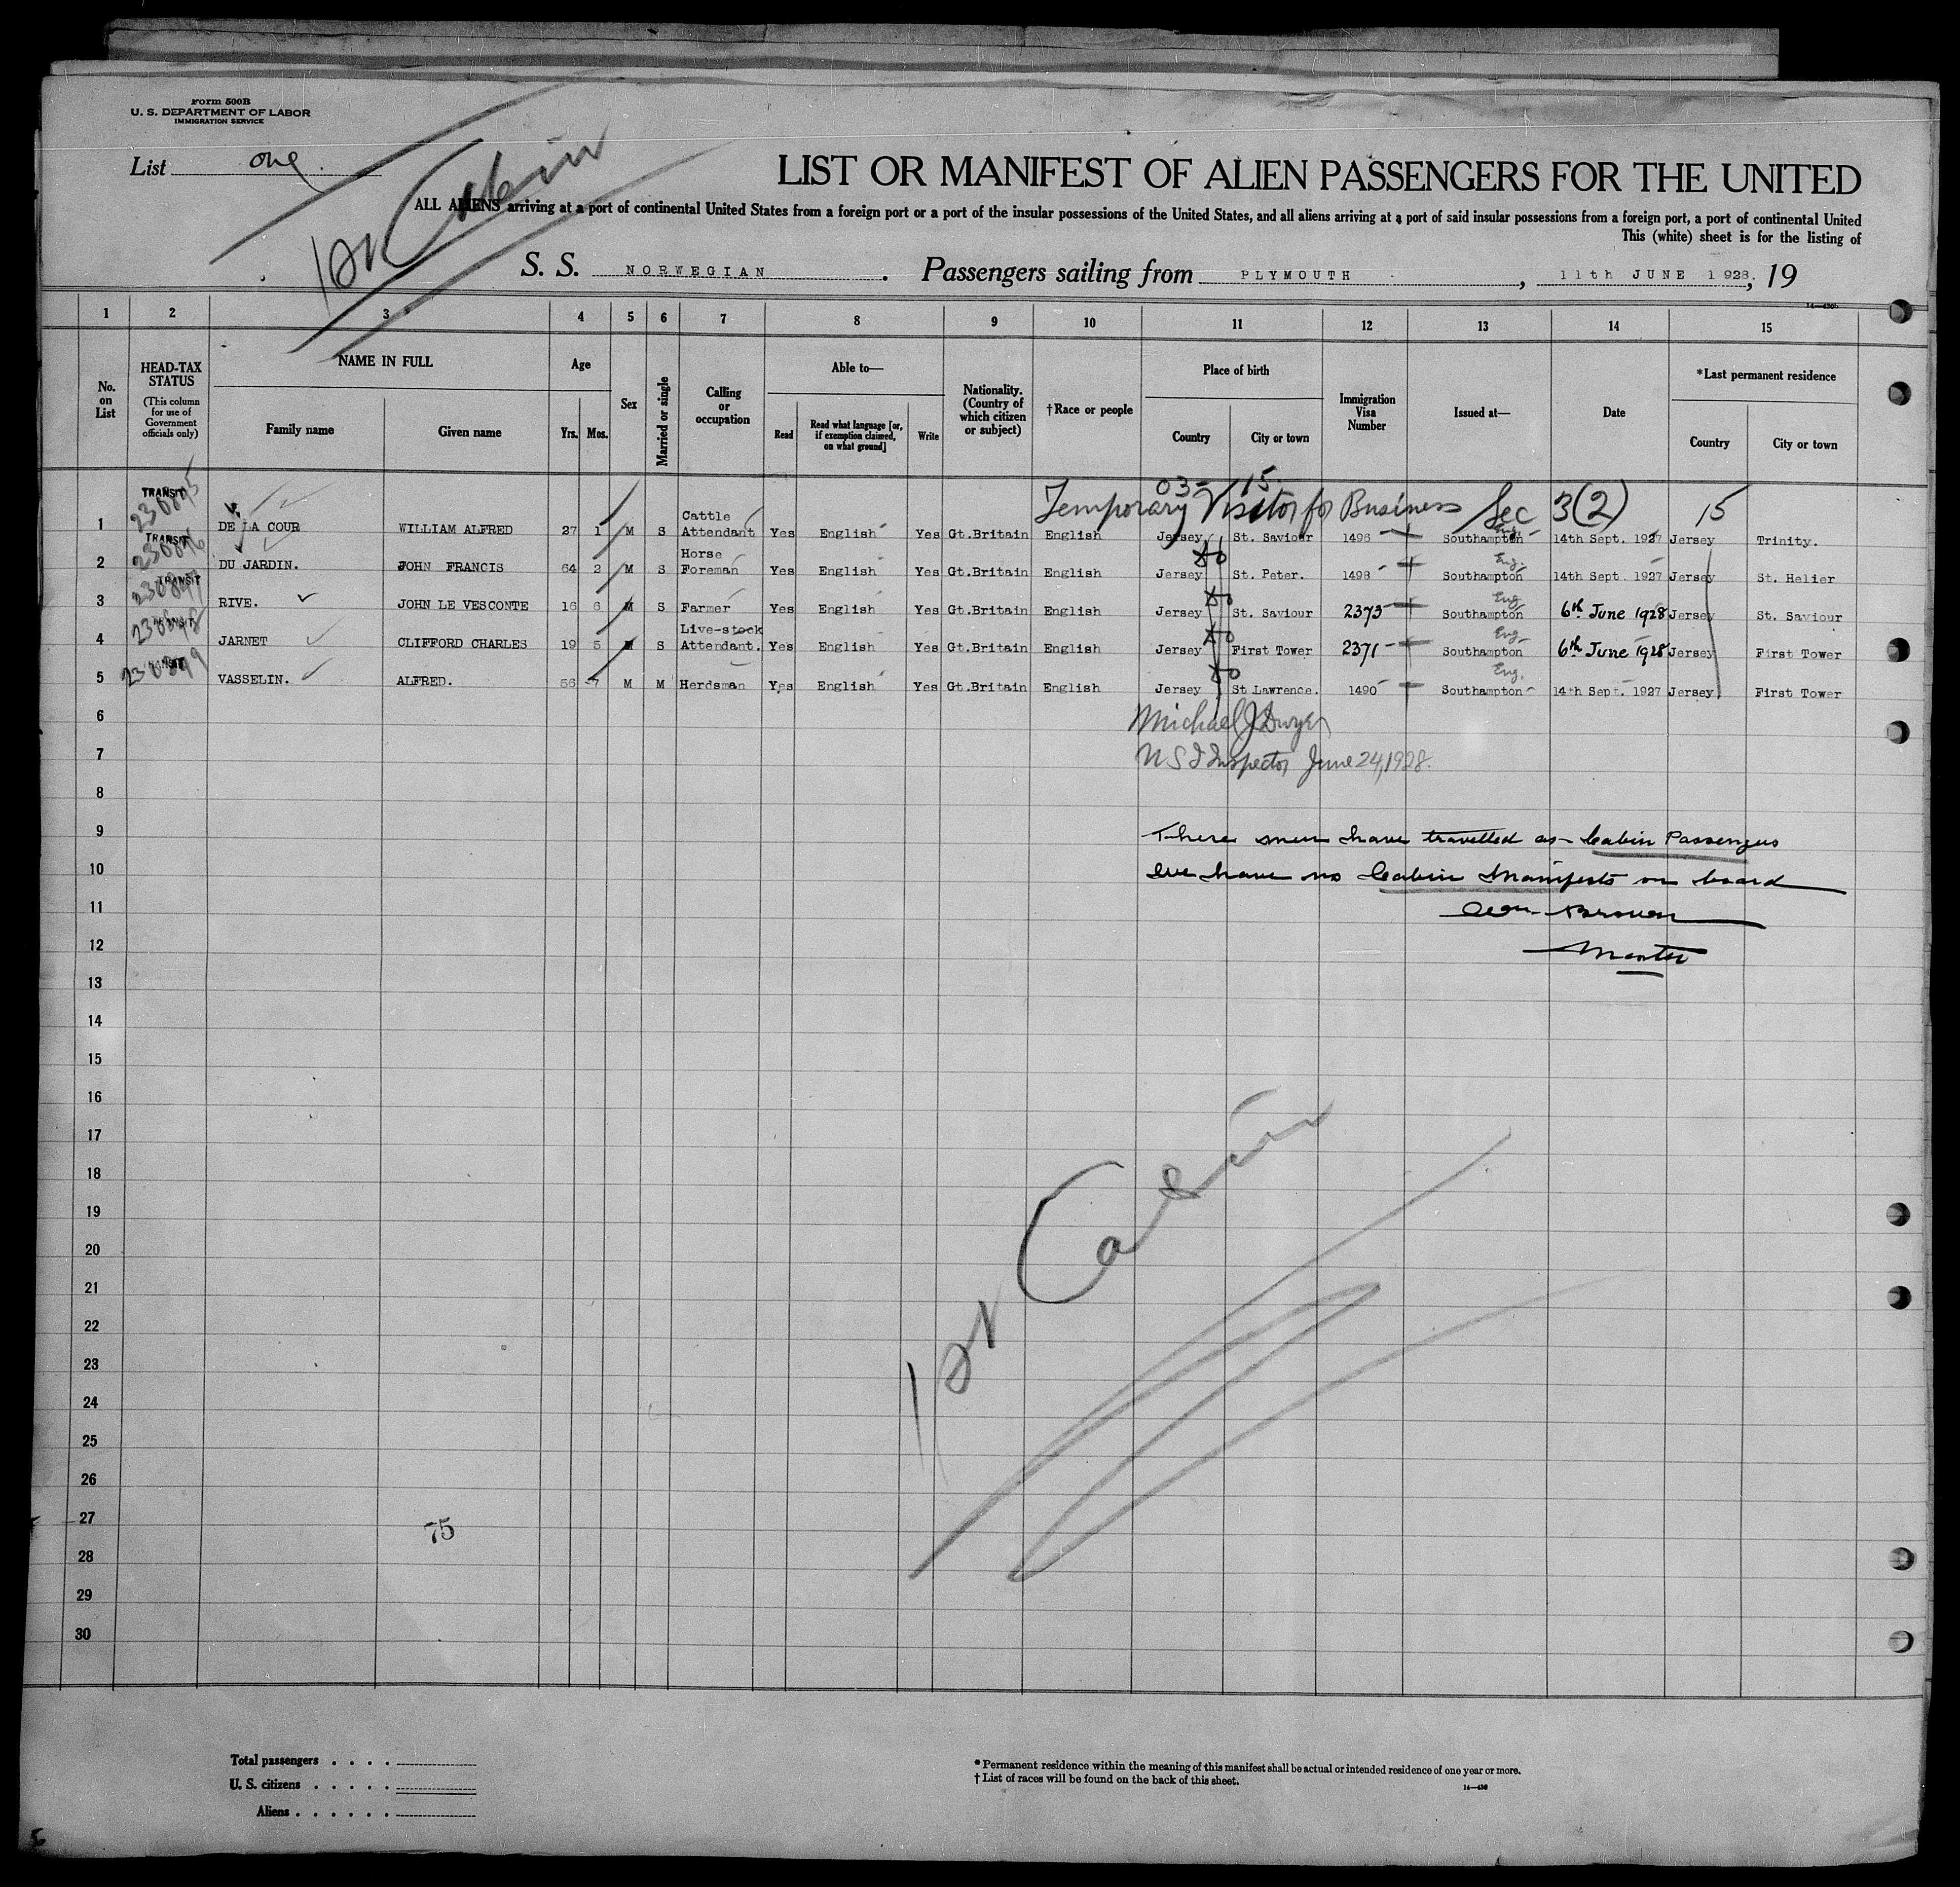 Form 500B
U. S. DEPARTMENT OF LABOR
IMMIGRATION SERVICE
List one.
1st Cabin
LIST OR MANIFEST OF ALIEN PASSENGERS FOR THE UNITED
ALL ALIENS arriving at a port of continental United States from a foreign port or a port of the insular possessions of the United States, and all aliens arriving at a port of said insular possessions from a foreign port, a port of continental United
This (white) sheet is for the listing of
S. S. NORWEGIAN. Passengers sailing from PLYMOUTH, 11th JUNE 1928, 19
14—430b
1 2 3 4 5 6 7 8 9 10 11 12 13 14 15
No. on List
HEAD-TAX STATUS (This column for use of Government officials only)
NAME IN FULL
Family name Given name
Age
Yrs. Mos.
Sex
Married or single
Calling or occupation
Able to—
Read
Read what language [or, if exemption claimed, on what ground]
Write
Nationality. (Country of which citizen or subject)
†Race or people
Place of birth
Country City or town
Immigration Visa Number
Issued at—
Date
*Last permanent residence
Country City or town
03- 15
Temporary Visitor for Business Sec 3(2) 15
1 TRANSIT 230895 DE LA COUR WILLIAM ALFRED 27 1 M S Cattle Attendant Yes English Yes Gt.Britain English Jersey St. Saviour 1496 Southampton Eng. 14th Sept. 1927 Jersey Trinity.
2 TRANSIT 230896 DU JARDIN. JOHN FRANCIS 64 2 M S Horse Foreman Yes English Yes Gt.Britain English Jersey St. Peter. 1498 Southampton Eng. 14th Sept. 1927 Jersey St. Helier
3 TRANSIT 230897 RIVE. JOHN LE VESCONTE 16 6 M S Farmer Yes English Yes Gt.Britain English Jersey St. Saviour 2373 Southampton Eng 6th June 1928 Jersey St. Saviour
4 TRANSIT 230898 JARNET CLIFFORD CHARLES 19 5 M S Live-stock Attendant. Yes English Yes Gt.Britain English Jersey First Tower 2371 Southampton Eng. 6th June 1928 Jersey First Tower
5 TRANSIT 230899 VASSELIN. ALFRED. 56 7 M M Herdsman Yes English Yes Gt.Britain English Jersey St Lawrence. 1490 Southampton Eng. 14th Sept. 1927 Jersey First Tower
6
Michael J Dwyer
7
U S I Inspector June 24, 1928.
8
9
These men have travelled as Cabin Passengers
10
We have no Cabin Manifests on board
11
Brown
12
Master
13
14
15
16
17
18
19
20
21
22
23
24
25
26
27
28
29
30
1st Cabin
75
Total passengers . . . .
U. S. citizens . . . . .
Aliens . . . . . .
* Permanent residence within the meaning of this manifest shall be actual or intended residence of one year or more.
† List of races will be found on the back of this sheet.
14—430